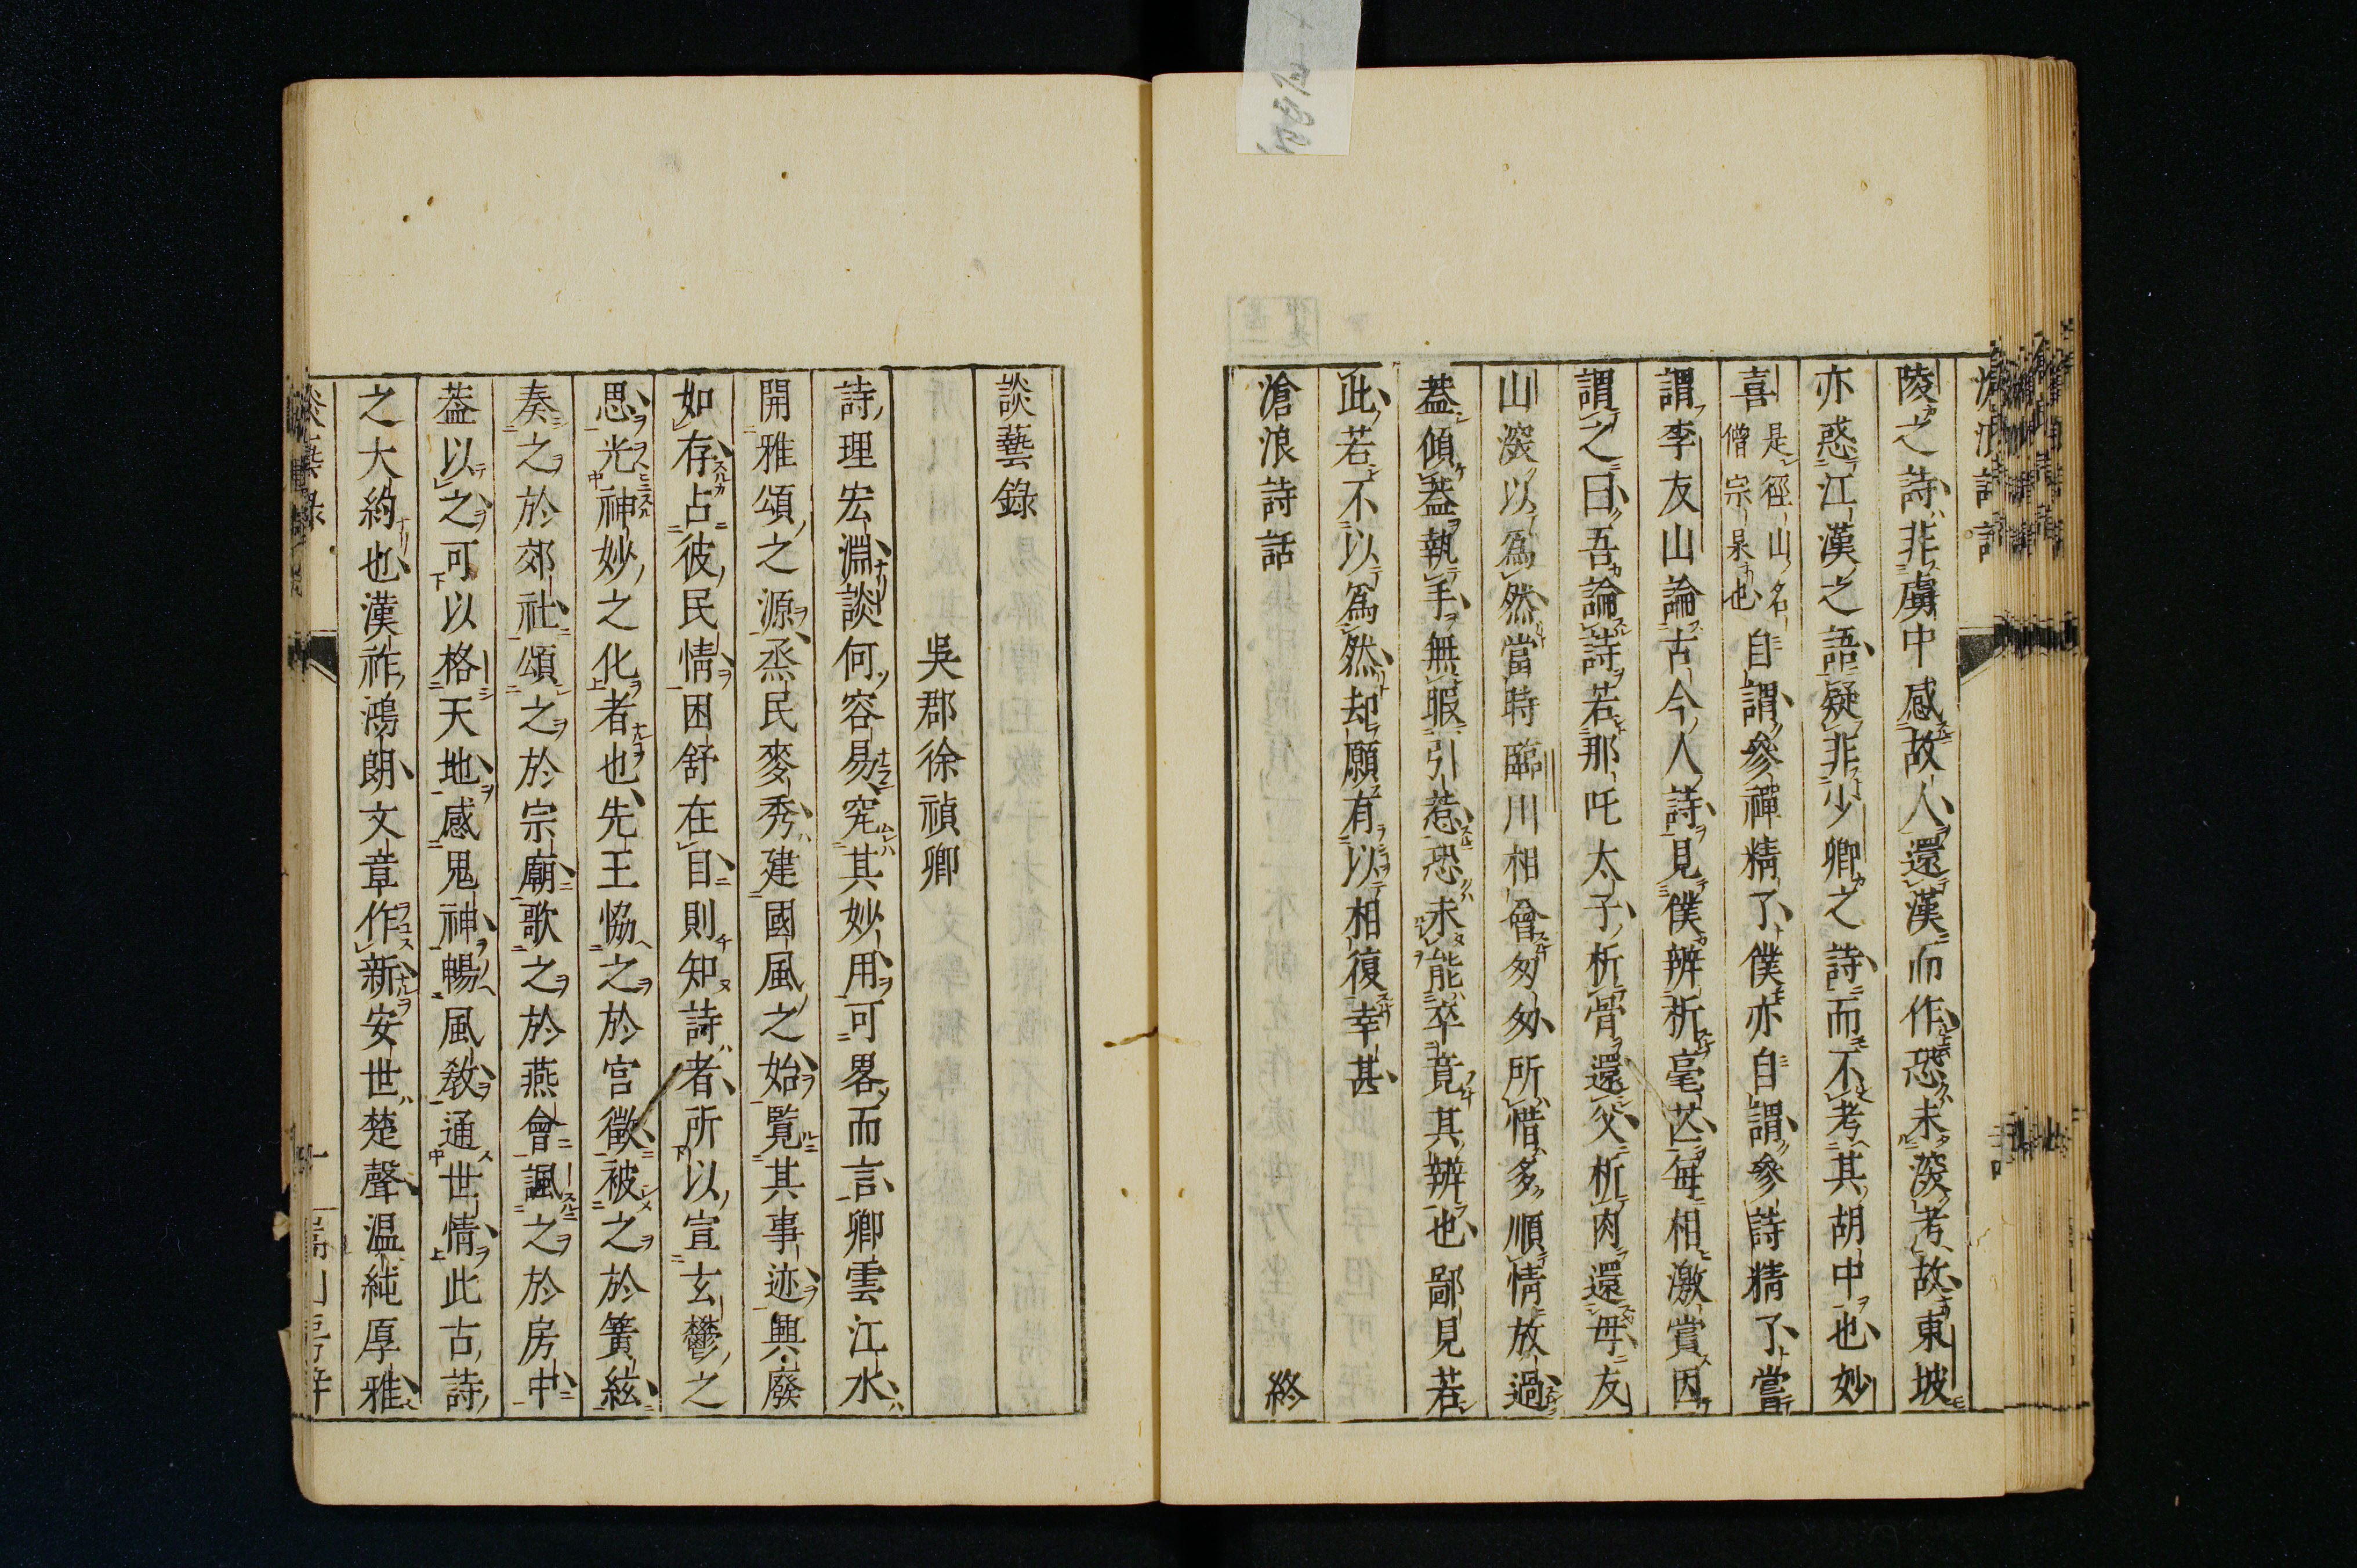 陵之詩非虜中感故人還漢而作恐未深考故東坡
亦惑江漢之語疑非少卿之詩而不考其胡中也妙
喜是徑山名僧宗杲也自謂參禪精了僕亦自謂參詩精了嘗
謂李友山論古今人詩見僕辨析毫芒每相激賞因
謂之曰吾論詩若那吒太子析骨還父析肉還母友
山深以為然當時臨川相會匆匆所惜多順情放過
蓋傾蓋執手無暇引惹恐未能卒竟其辨也鄙見若
此若不以為然却願有以相復幸甚
滄浪詩話 終
談藝錄
吳郡徐禎卿
詩理宏淵談何容易究其妙用可畧而言卿雲江水
開雅頌之源烝民麥秀建國風之始覽其事迹興廢
如存占彼民情困舒在目則知詩者所以宣玄鬱之
思光神妙之化者也先王協之於宮徵被之於簧絃
奏之於郊社頌之於宗廟歌之於燕會諷之於房中
蓋以之可以格天地感鬼神暢風教通世情此古詩
之大約也漢祚鴻朗文章作新安世楚聲温純厚雅